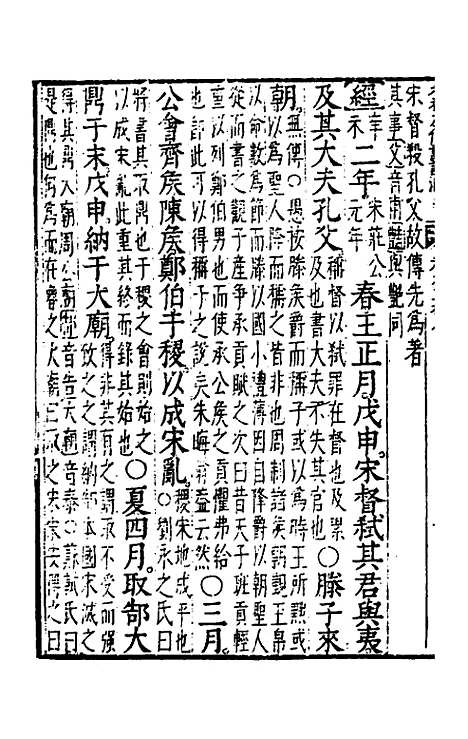 宋督殺孔父故傳先爲著
其事父音甫艷與豔同
經辛未二年宋莊公元年春王正月戊申宋督弑其君與夷
及其大夫孔父稱督以弑罪在督也及累及也書大夫不失其官也○滕子來
朝無傳○愚按滕矦爵而稱子或以爲時王所黜或
以爲聖人降而稱之昔非也周制諸矦朝覲王帛
以命數爲節而滕以國小禮薄因自降爵以朝聖人
從而書之觀子產爭承貢賦之次曰昔天子班貢輕
重以列鄭伯男也而使承公矦之貢懼弗給
也許男可以得稱子之說矣朱晦翁蓋云然○三月
公會齊矦陳矦鄭伯于稷以成宋亂稷宋地成平也○劉永之氏曰
將書其取鼎故于稷之會則始之
以成宋亂此重而錄其始也○夏四月取郜大
鼎于宋戊申納于大廟得非其有之謂取不受而强致之之謂納郜本國宋滅之
得其鼎大廟周公廟郜音告大音泰○孫氏曰
是鼎也爲而在魯之大廟曰取之宋宋安得之曰